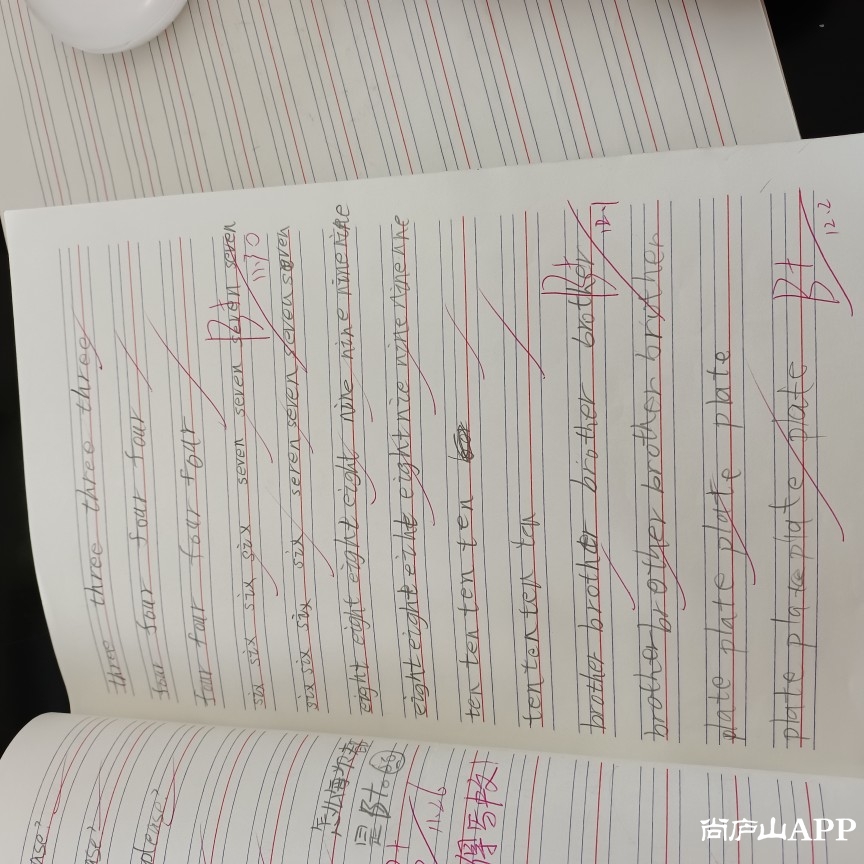 three three three three
four four four four
four four four four
six six six six seven seven seven seven
B+
11.30
six six six six seven seven seven seven
eight eight eight eight nine nine nine nine
eight eight eiht eight nie nine nine nine
ten ten ten ten
ten ten ten ten
brother brother brother brother brother
B+
12.1
brother brother brother brother brother
plate plate plate plate plate
plate plate plate plate plate
B+
12.2
please?
是B+。
11.26
尚庐山APP